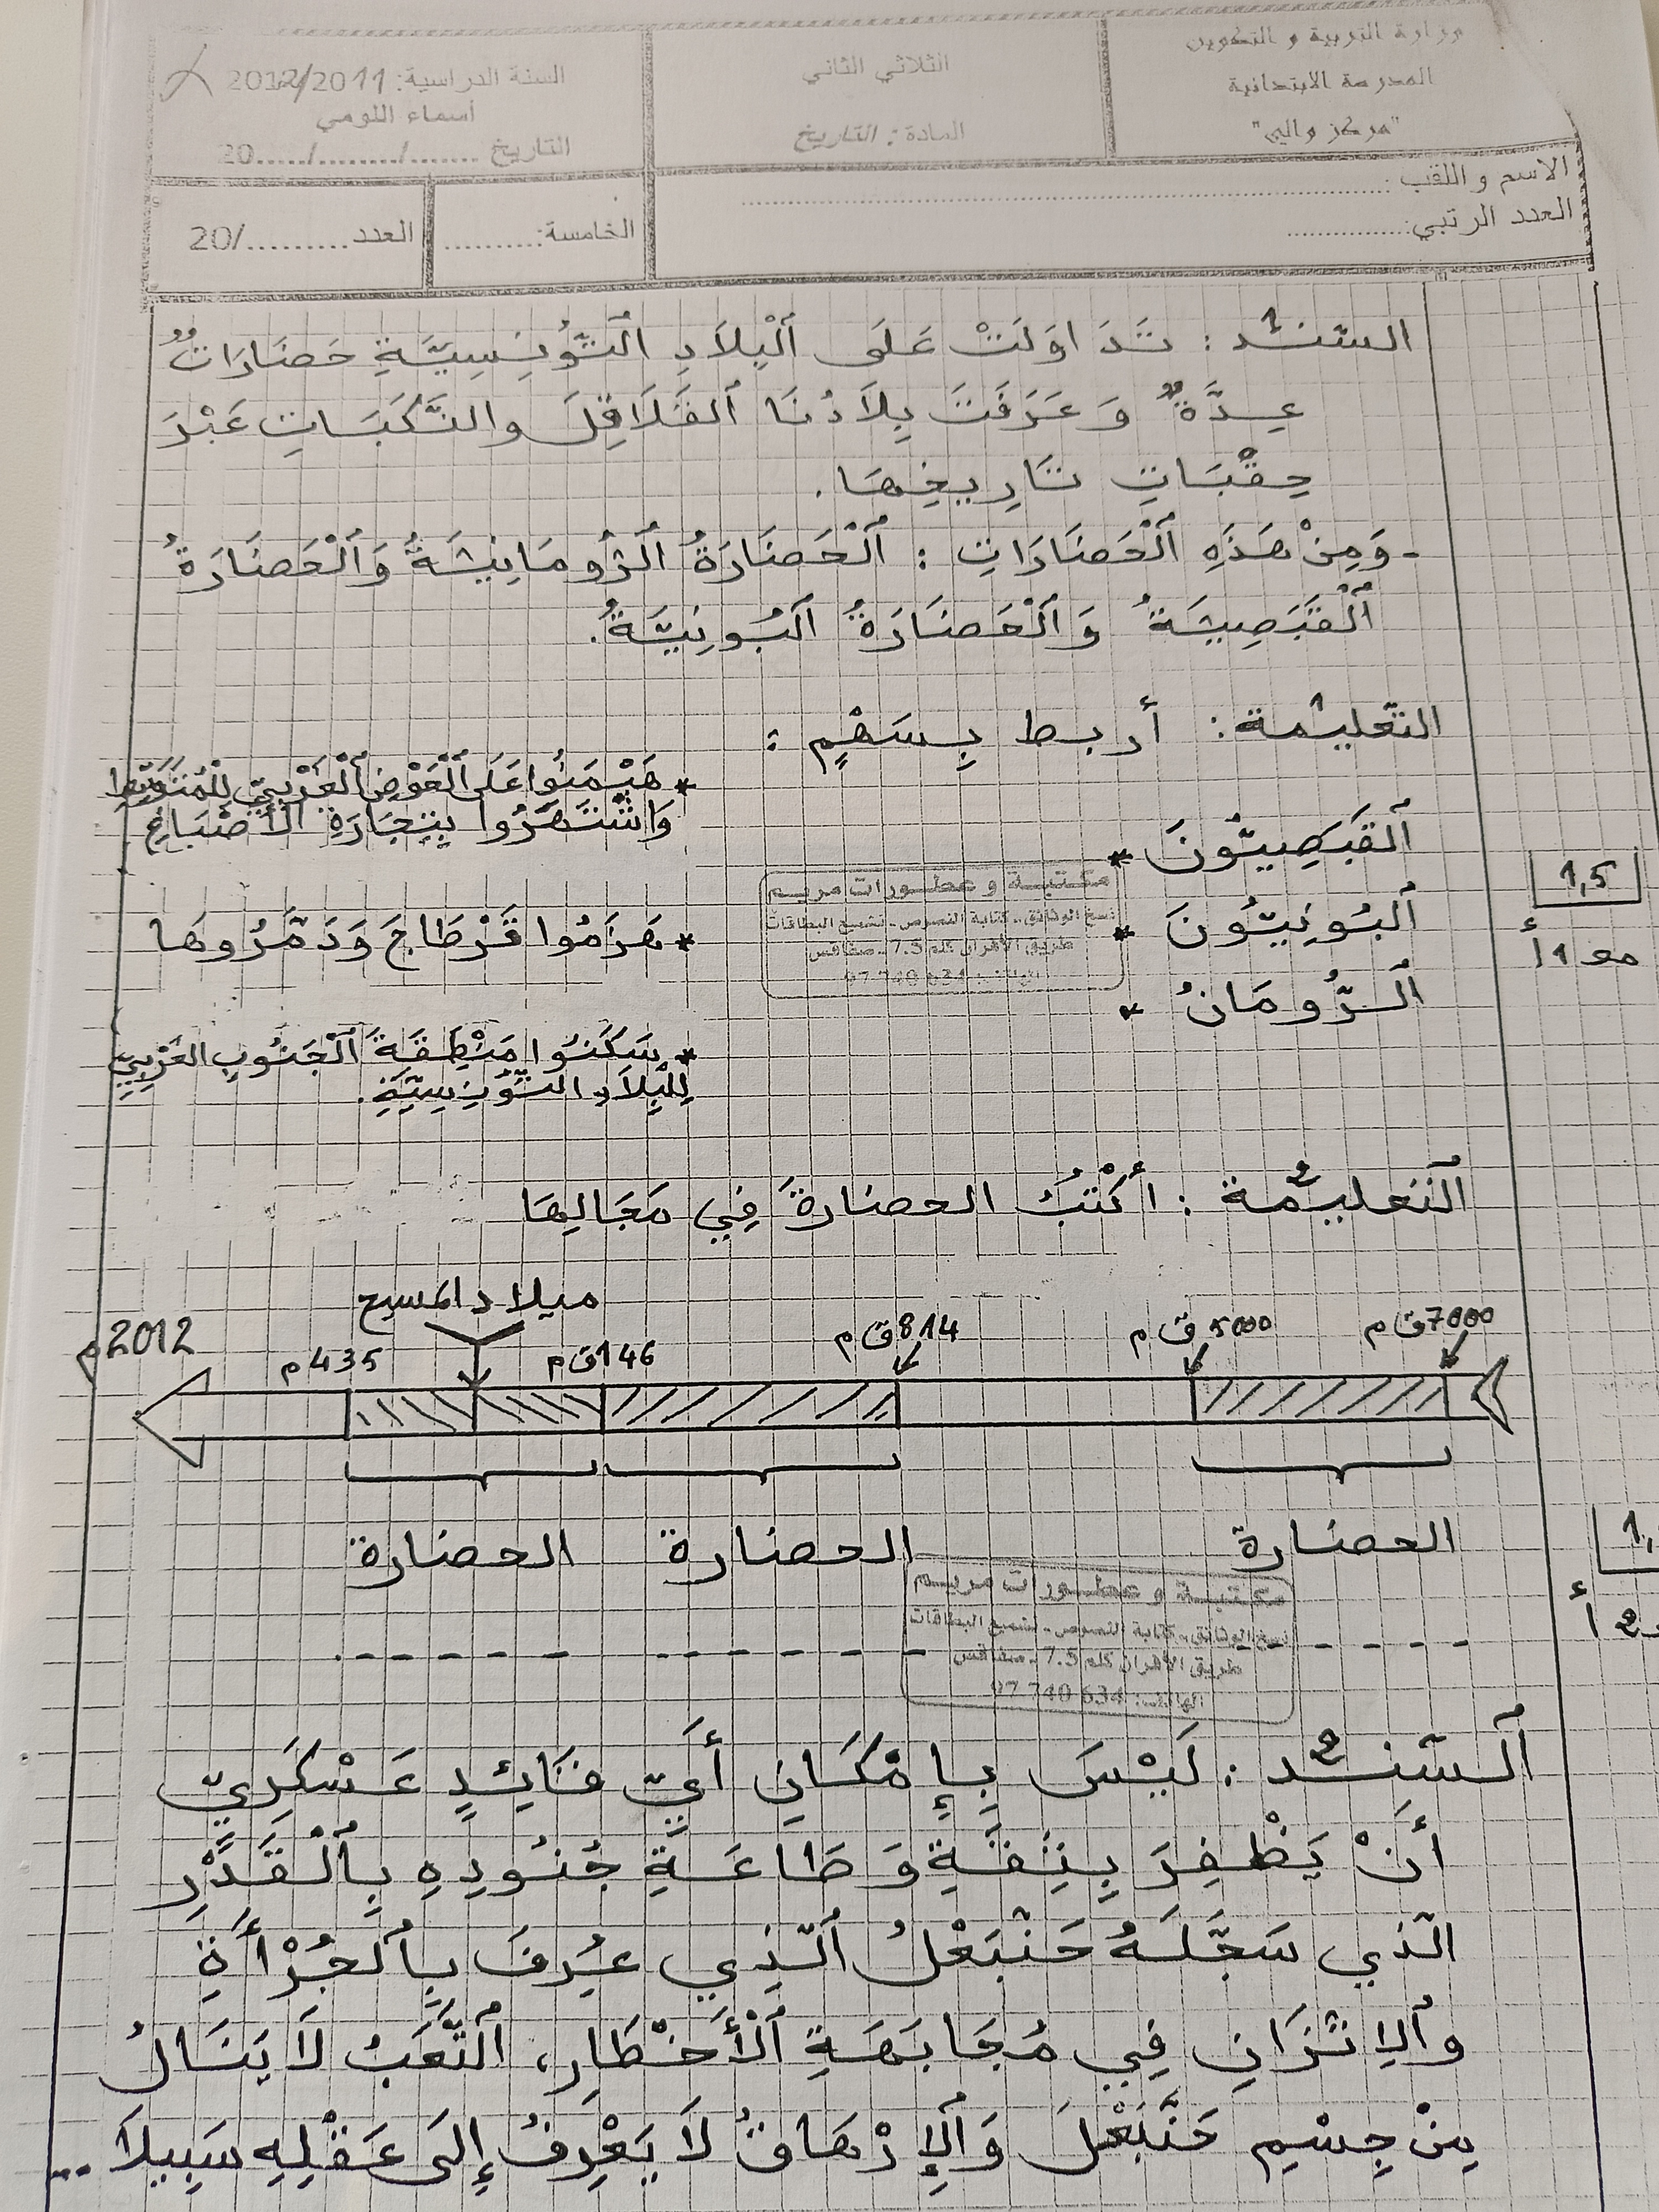 وزارة التربية و التكوين
المدرسة الابتدائية
"مركز واليم"
الثلاثي الثاني
المادة: التاريخ
السنة الدراسية: 2012/2011
أسماء اللومي
التاريخ ......./......../.....20
الاسم و اللقب:
العدد الرتبي:
الخامسة:
العدد........./20
السّند1: تَدَاوَلَتْ عَلَى ٱلْبِلَادِ ٱلتُّونِسِيَّةِ حَضَارَاتٌ
عِدَّةٌ وَ عَرَفَتْ بِلَادُنَا ٱلقَلَاقِلَ والنَّكَبَاتِ عَبْرَ
حِقْبَاتِ تَارِيخِهَا.
- وَمِنْ هَذِهِ ٱلْحَضَارَاتِ: ٱلْحَضَارَةُ ٱلرُّومَانِيَّةُ وَٱلْحَضَارَةُ
ٱلْقَبَصِيَّةُ وَٱلْحَضَارَةُ ٱلبُونِيَّةُ.
التعليمة1: أربط بِسَهْمٍ:
* هَيْمَنُوا عَلَى ٱلْحَوْضِ ٱلْغَرْبِيِّ لِلْمُتَوَسِّطِ
وَاشْتَهَرُوا بِتِجَارَةِ الأَصْبَاغِ
ٱلقَبَصِيُّونَ *
ٱلبُونِيُّونَ *
* هَزَمُوا قَرْطَاجَ وَدَمَّرُوهَا
ٱلرُّومَانُ *
* سَكَنُوا مَنْطِقَةَ ٱلْجَنُوبِ الغَرْبِيِّ
لِلْبِلَادِ التُّونِسِيَّةِ.
1,5
مع 1 أ
مكتبة و عطورات مريم
نسخ الوثائق - كتابة النصوص - تشميع البطاقات
طريق الأفران كلم 7.5 - صفاقس
الهاتف: 97 740 634
ٱلتعليمة2: أكْتُبُ الحضارةَ فِي مَجَالِهَا
ميلاد المسيح
7000 ق م
5000 ق م
814 ق م
146 ق م
435 م
2012 م
الحضارة
الحضارة
الحضارة
مكتبة و عطورات مريم
نسخ الوثائق - كتابة النصوص - تشميع البطاقات
طريق الأفران كلم 7.5 - صفاقس
الهاتف: 97 740 634
ٱلسّند2: لَيْسَ بِإِمْكَانِ أَيِّ قَائِدٍ عَسْكَرِيّ
أَنْ يَظْفِرَ بِثِقَةِ وَ طَاعَةِ جُنُودِهِ بِٱلْقَدْرِ
الّذي سَجَّلَهُ حَنَّبَعْلُ ٱلّذِي عُرِفَ بِٱلجُرْأَةِ
وٱلِاتّزَانِ فِي مُجَابَهَةِ ٱلْأَخْطَارِ، ٱلتَّعَبُ لَا يَنَالُ
مِنْ جِسْمِ حَنَّبَعْلَ وَٱلإِرْهَاقُ لَا يَعْرِفُ إِلَى عَقْلِهِ سَبِيلاَ...